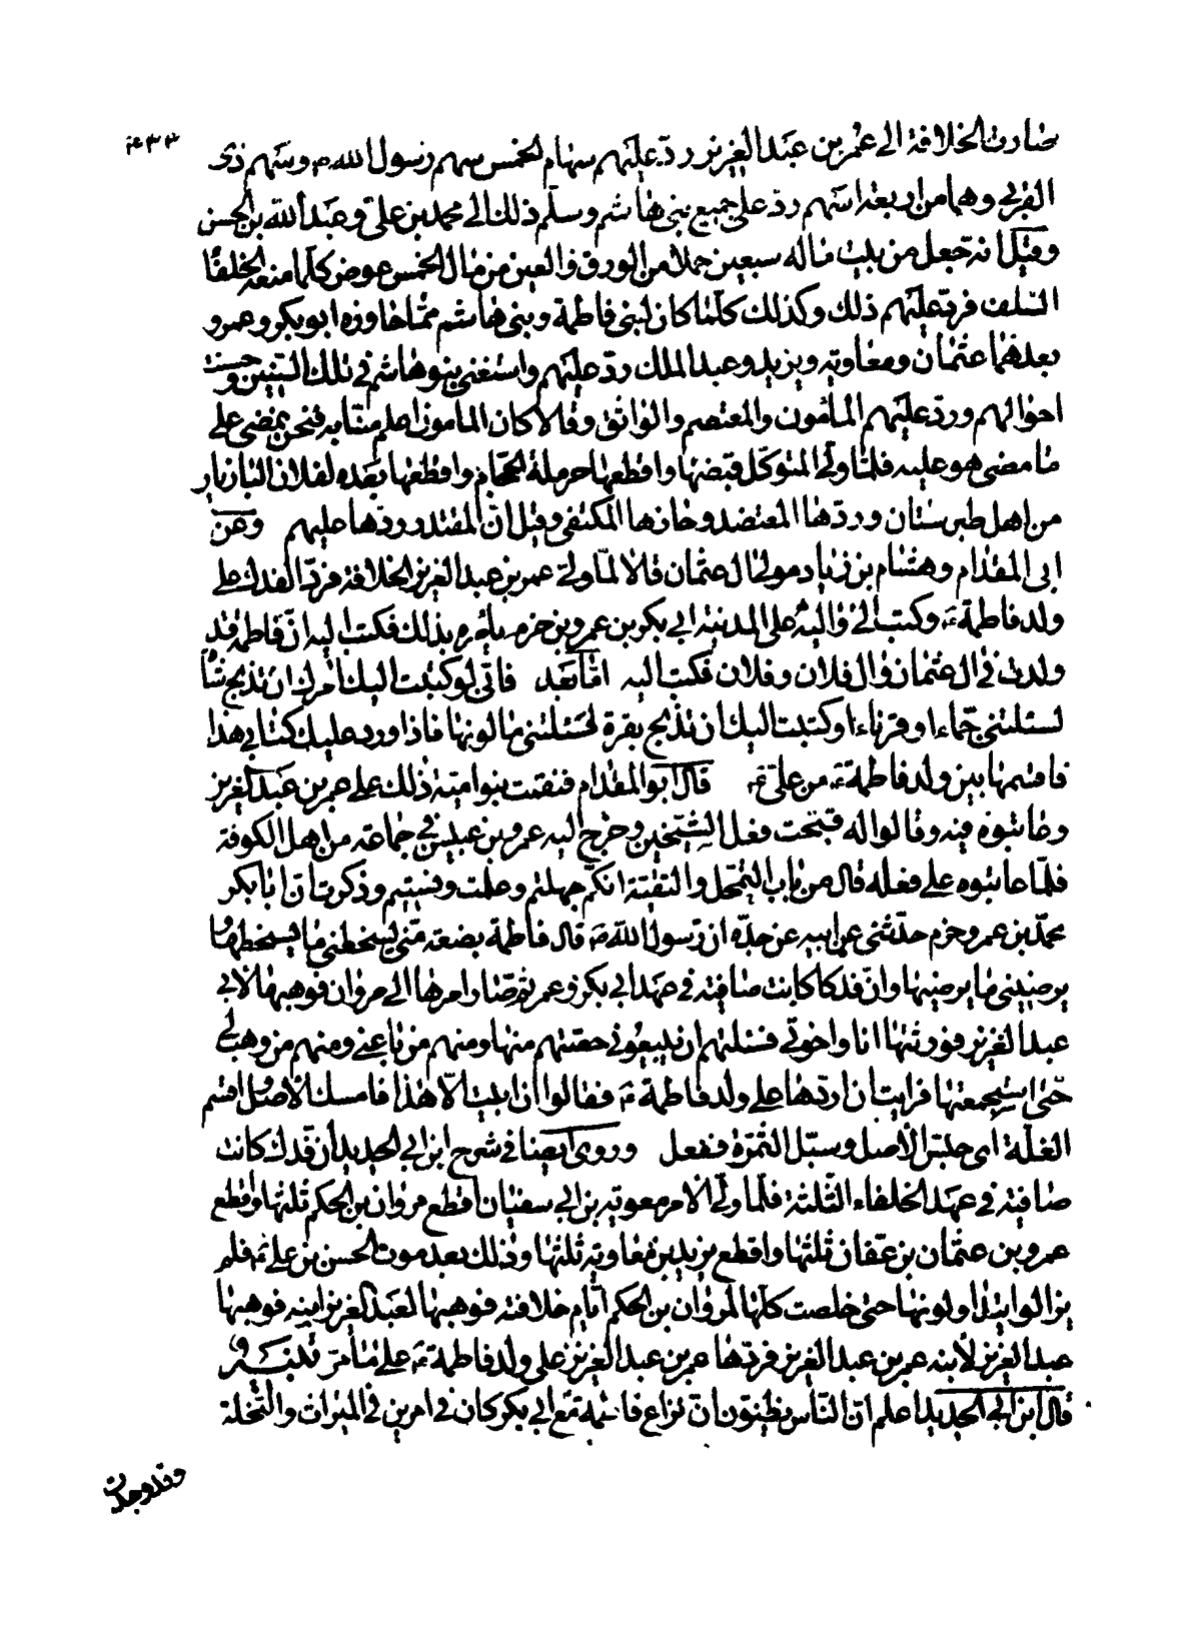 ۴۳۳
صارت الخلافة الى عمر بن عبد العزيز ردّ عليهم سهام الخمس سهم رسول الله ص وسهم ذى
القربى وهما من اربعة اسهم ردّ على جميع بنى هاشم وسلّم ذلك الى محمد بن علىّ وعبد الله بن الحسن
وقيل انه جعل من بيت ماله سبعين حملا من الورق والعين من مال الخمس عوض كلما منعه الخلفا
السلف فردّ عليهم ذلك وكذلك كلما كان لبنى فاطمة وبنى هاشم ممّا حاوزه ابو بكر وعمر و
بعدهما عثمان ومعاوية ويزيد وعبد الملك ردّ عليهم واستغنى بنو هاشم فى تلك السنين وحسنت
احوالهم وردّ عليهم المأمون والمعتصم والواثق وقالا كان المأمون اعلم منّا به فنحن نمضى على
ما مضى هو عليه فلمّا ولّى المتوكّل قبضها واقطعها حرملة الحجّام واقطعها بعده لفلان البازيار
من اهل طبرستان وردّها المعتضد وحازها المكتفى وقيل انّ المقتدر ردّها عليهم وعن
ابى المقدام وهشام بن زياد مولى ال عثمان قالا لمّا ولّى عمر بن عبد العزيز الخلافة فردّ الفدك على
ولد فاطمة ع وكتب الى واليه على المدينة ابى بكر بن عمرو بن حزم يأمره بذلك فكتب اليه انّ فاطمة قد
ولدت فى ال عثمان وال فلان وفلان فكتب اليه امّا بعد فانّى لو كتبت اليك امرك ان تذبح شاة
لسئلتنى جمّاء او قرناء او كتبت اليك ان تذبح بقرة لسئلتنى ما لونها فاذا ورد عليك كتابى هذا
فاقسمها بين ولد فاطمة ع من علىّ ع قال ابو المقدام فنقمت بنو اميّة ذلك على عمر بن عبد العزيز
وعاتبوه فيه وقالوا له قبّحت فعل الشيخين وخرج اليه عمرو بن عبيس فى جماعة من اهل الكوفة
فلمّا عاتبوه على فعله قال انكم جهلتم وعلمت ونسيتم وذكرت انّ ابا بكر
محمّد بن عمرو حزم حدّثنى عن ابيه عن جدّه ان رسول الله ص قال فاطمة بضعة منّى يسخطنى ما يسخطها و
يرضينى ما يرضيها وانّ فدكا كانت صافية فى عهد ابى بكر وعمر ثم صار امرها الى مروان فوهبها لابى
عبد العزيز فورثتها انا واخوتى فسئلتهم ان يبيعونى حصّتهم منها ومنهم من باعنى ومنهم من وهب لى
حتى استجمعتها فرايت ان اردّها على ولد فاطمة ع فقالوا ان ابيت الاّ هذا فامسك الاصل واقسم
الغلّة اى حبّس الاصل وسبّل الثمرة ففعل وروى ايضا فى شرح ابن ابى الحديد ان فدك كانت
صافية فى عهد الخلفاء الثلثة فلمّا ولّى الامر معوية بن ابى سفيان اقطع مروان بن الحكم ثلثها واقطع
عمرو بن عثمان بن عفان ثلثها واقطع يزيد بن معاوية ثلثها وذلك بعد موت الحسن بن على ع فلم
يزالوا يتداولونها حتى خلصت كلّها لمروان بن الحكم ايّام خلافته فوهبها لعبد العزيز ابنه فوهبها
عبد العزيز لابنه عمر بن عبد العزيز فردّها عمر بن عبد العزيز على ولد فاطمة ع على ما مرّ
قال ابن ابى الحديد اعلم انّ النّاس يظنّون انّ نزاع فاطمة مع ابى بكر كان فى امرين فى الميراث والنّحلة
وقد وجدت